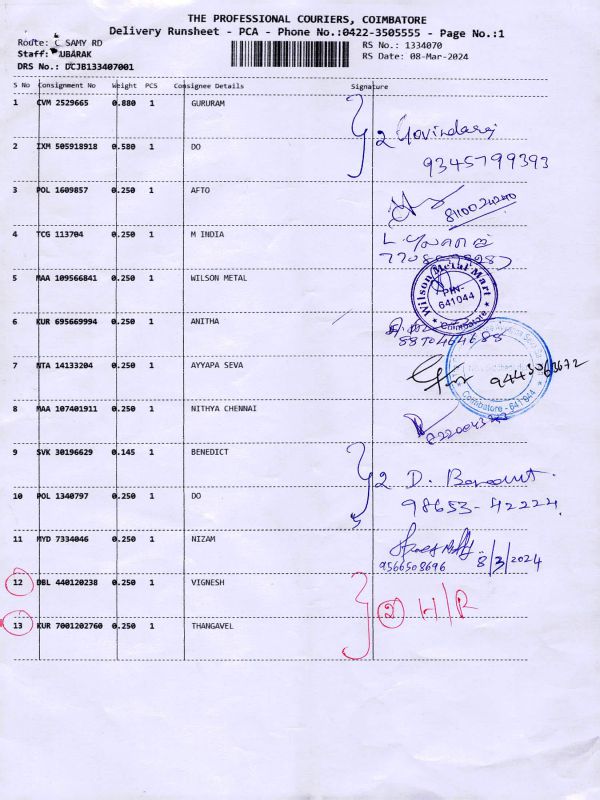 THE PROFESSIONAL COURIERS, COIMBATORE
Delivery Runsheet - PCA - Phone No.:0422-3505555 - Page No.:1
Route: C SAMY RD
RS No.: 1334070
Staff: UBARAK
RS Date: 08-Mar-2024
DRS No.: DCJB133407001
S No Consignment No Weight PCS Consignee Details Signature
1 CVM 2529665 0.880 1 GURURAM
2 Govindaraj
2 IXM 505918918 0.580 1 DO
9345799393
3 POL 1609857 0.250 1 AFTO
8110024240
4 TCG 113704 0.250 1 M INDIA
5 MAA 109566841 0.250 1 WILSON METAL
Wilson Metal Mart
PIN-
641044
Coimbatore
6 KUR 695669994 0.250 1 ANITHA
7 NTA 14133204 0.250 1 AYYAPA SEVA
9443063672
Coimbatore - 641
8 MAA 107401911 0.250 1 NITHYA CHENNAI
9 SVK 30196629 0.145 1 BENEDICT
2 D. Benedict.
10 POL 1340797 0.250 1 DO
98653-42224
11 MYD 7334046 0.250 1 NIZAM
9566508696 8/3/2024
12 DBL 440120238 0.250 1 VIGNESH
2 H/R
13 KUR 7001202760 0.250 1 THANGAVEL